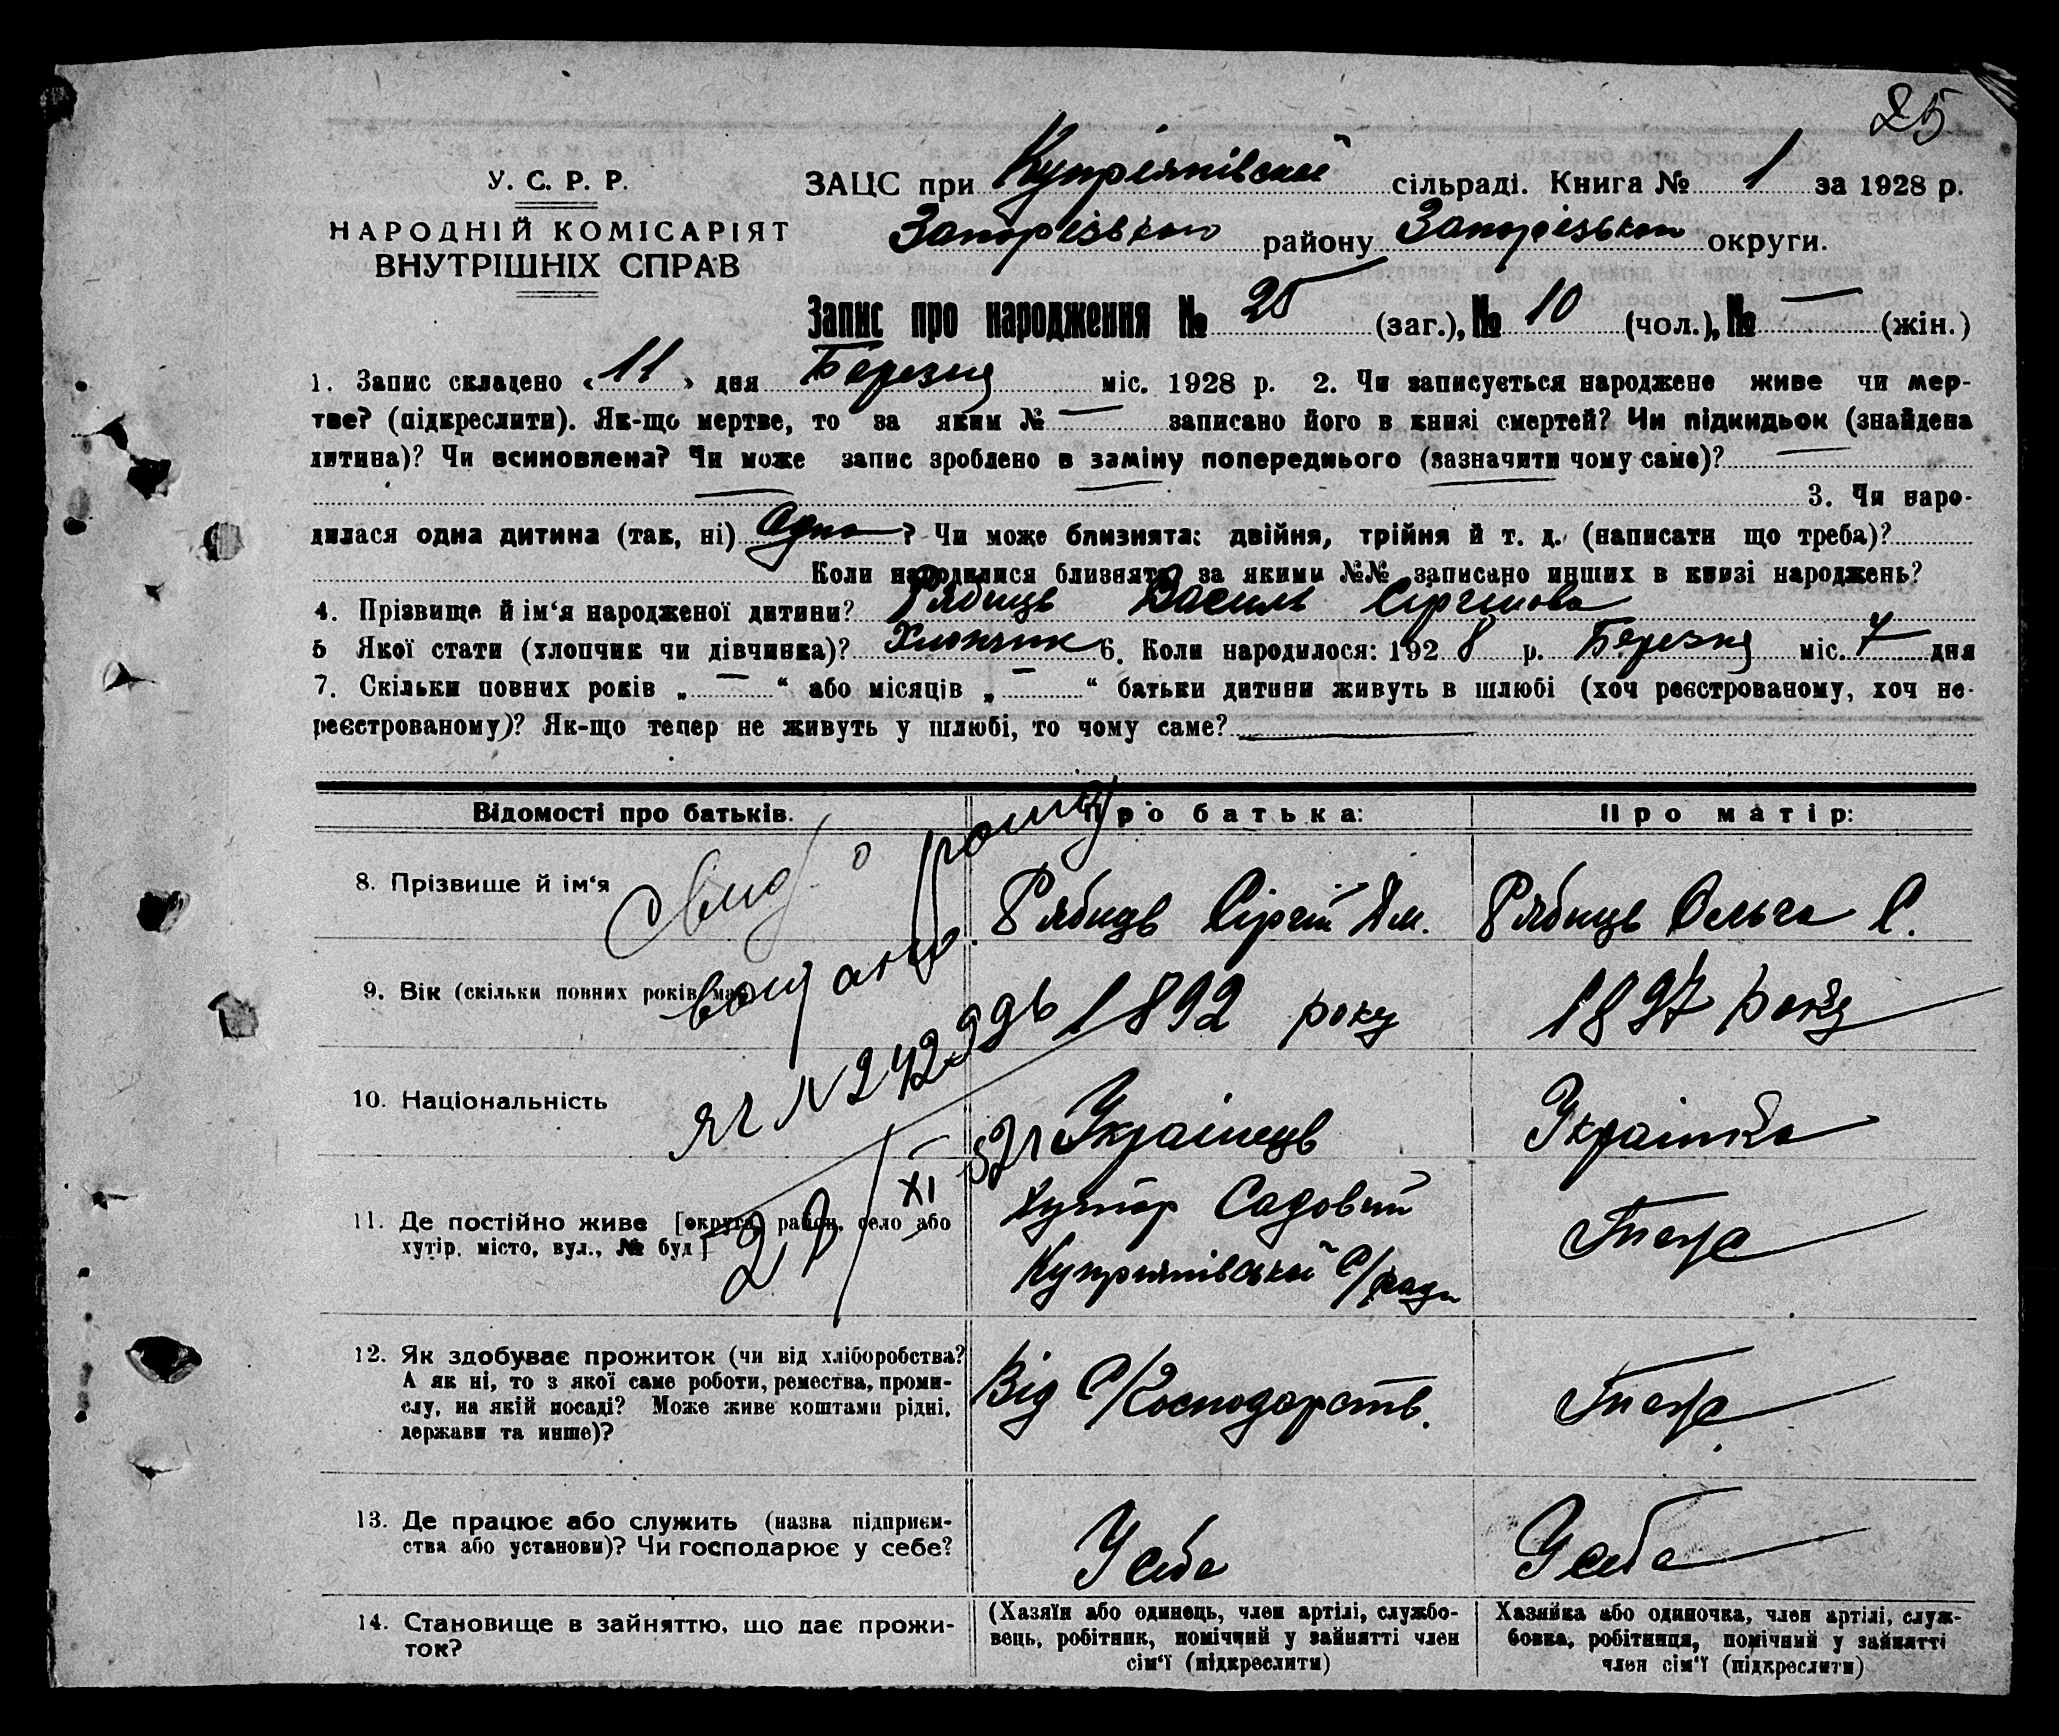 25
У. С. Р. Р.
НАРОДНІЙ КОМІСАРІЯТ
ВНУТРІШНІХ СПРАВ
ЗАЦС при Купріянівській сільраді. Книга № 1 за 1928 р.
Запорізького району Запорізької округи.
Запис про народження № 25 (заг.), № 10 (чол.), № — (жін.)
1. Запис складено « 11 » дня Березня міс. 1928 р. 2. Чи записується народжене живе чи мер-
тве? (підкреслити). Як-що мертве, то за яким № — записано його в книзі смертей? Чи підкидьок (знайдена
дитина)? Чи всиновлена? Чи може запис зроблено в заміну попереднього (зазначити чому саме)? —
— — — 3. Чи наро-
дилася одна дитина (так, ні) Одна ? Чи може близнята: двійня, трійня й т. д. (написати що треба)?
Коли народилися близнята, за якими №№ записано инших в книзі народжень?
4. Прізвище й ім‘я народженої дитини? Рябиць Василь Сергійов
5 Якої стати (хлопчик чи дівчинка)? Хлопчик 6. Коли народилося: 1928 р. Березня міс. 7 дня
7. Скільки повних років „ — “ або місяців „ — “ батьки дитини живуть в шлюбі (хоч реєстрованому, хоч не-
реєстрованому)? Як-що тепер не живуть у шлюбі, то чому саме? —
Відомості про батьків. Про батька: Про матір:
8. Прізвище й ім‘я Рябиць Сергій Дм. Рябиць Ольга С.
Свид. о рожд
9. Вік (скільки повних років має) 1892 року 1897 року
ЯЧ N 242996
10. Національність Українець Українка
22/XI 52г
11. Де постійно живе [округа, район, село або
хутір, місто, вул., № буд]
Хутор Садовий
Купріянівської С/ради
Теж
12. Як здобуває прожиток (чи від хліборобства?
А як ні, то з якої саме роботи, ремества, проми-
слу, на якій посаді? Може живе коштами рідні,
держави та инше)?
Від С/Господарств.
Теж
13. Де працює або служить (назва підприєм-
ства або установи)? Чи господарює у себе?
У себе
У себе
14. Становище в зайняттю, що дає прожи-
ток?
(Хазяїн або одинець, член артілі, службо-
вець, робітник, помічний у зайнятті член
сім‘ї (підкреслити)
Хазяйка або одиночка, член артілі, служ-
бовка, робітниця, помічний у зайнятті
член сім‘ї (підкреслити)